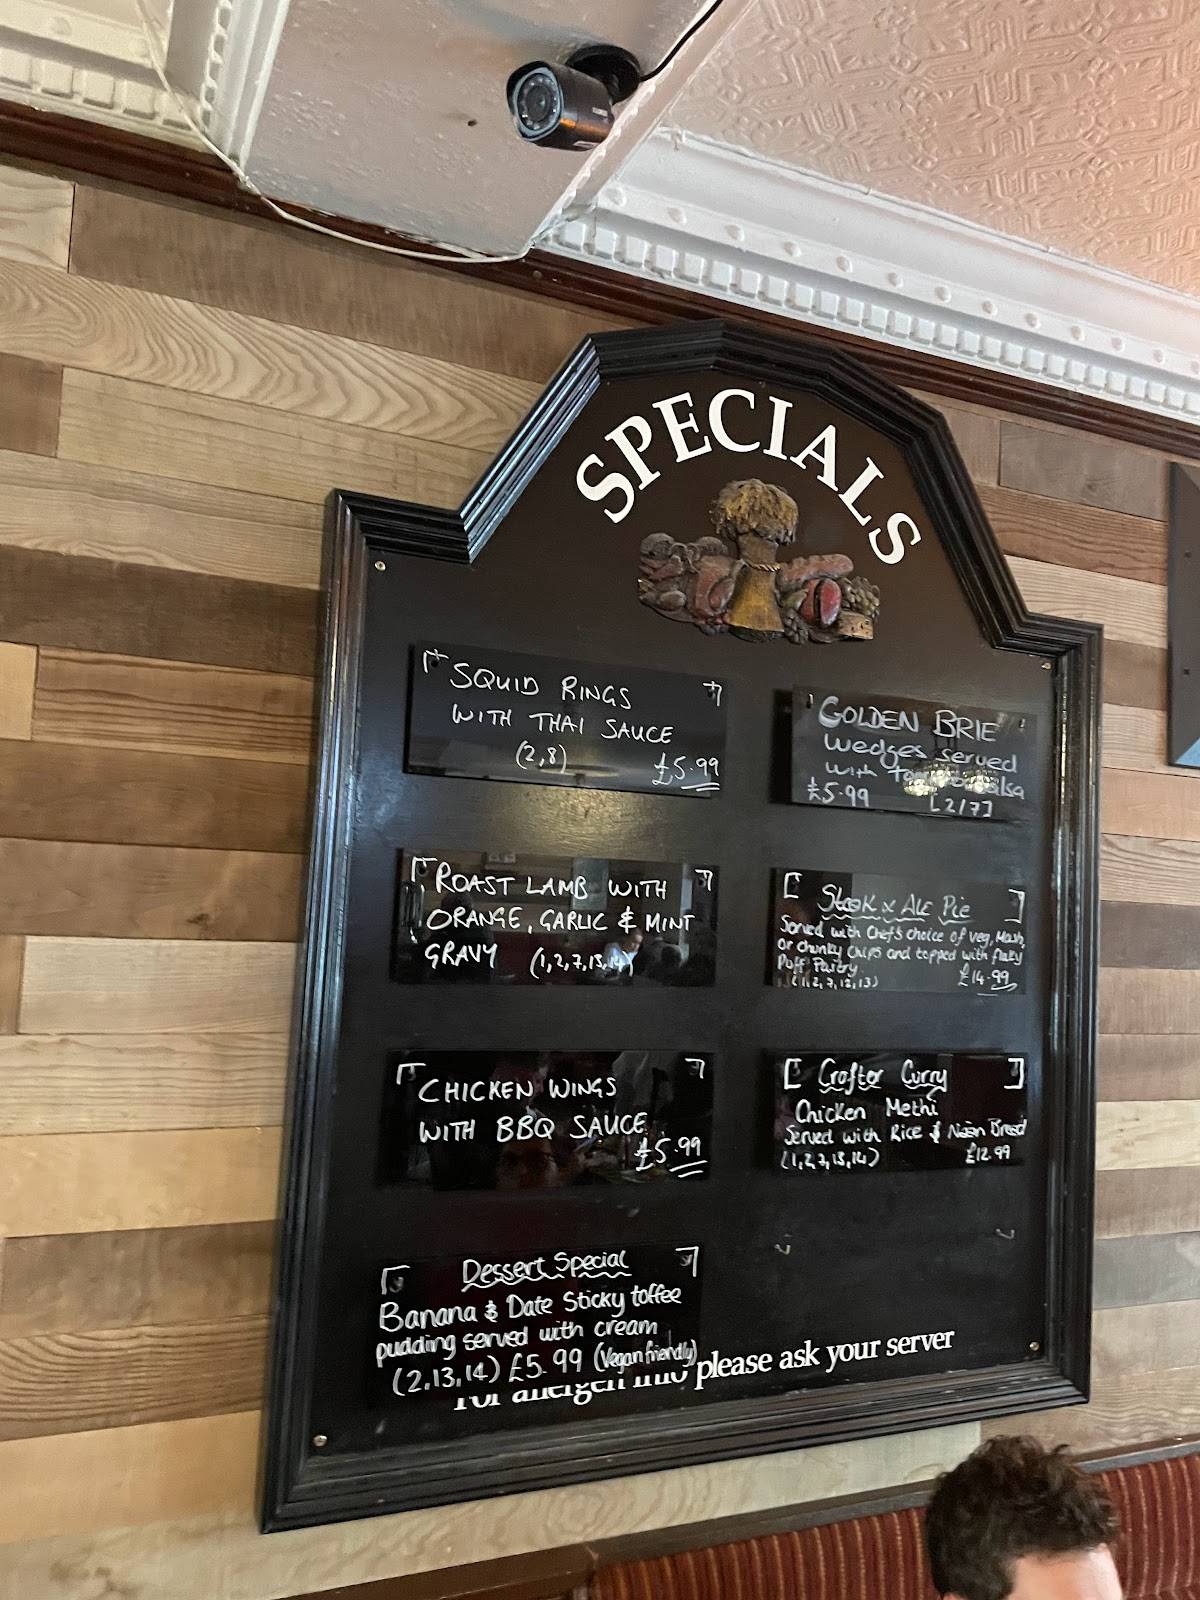 SPECIALS
SQUID RINGS
WITH THAI SAUCE
(2,8) £5.99
GOLDEN BRIE
wedges served
with
£5.99 [2/7]
ROAST LAMB WITH
ORANGE, GARLIC & MINT
GRAVY (1,2,7,13,14)
Steak & Ale Pie
Served with Chef's choice of veg, Mash,
or chunky chips and topped with flaky
Puff Pastry £14.99
(1,2,7,12,13)
CHICKEN WINGS
WITH BBQ SAUCE
£5.99
Crafter Curry
Chicken Methi
Served with Rice & Naan Bread
(1,2,7,13,14) £12.99
Dessert Special
Banana & Date Sticky toffee
pudding served with cream
(2,13,14) £5.99 (Vegan friendly)
For allergen info please ask your server